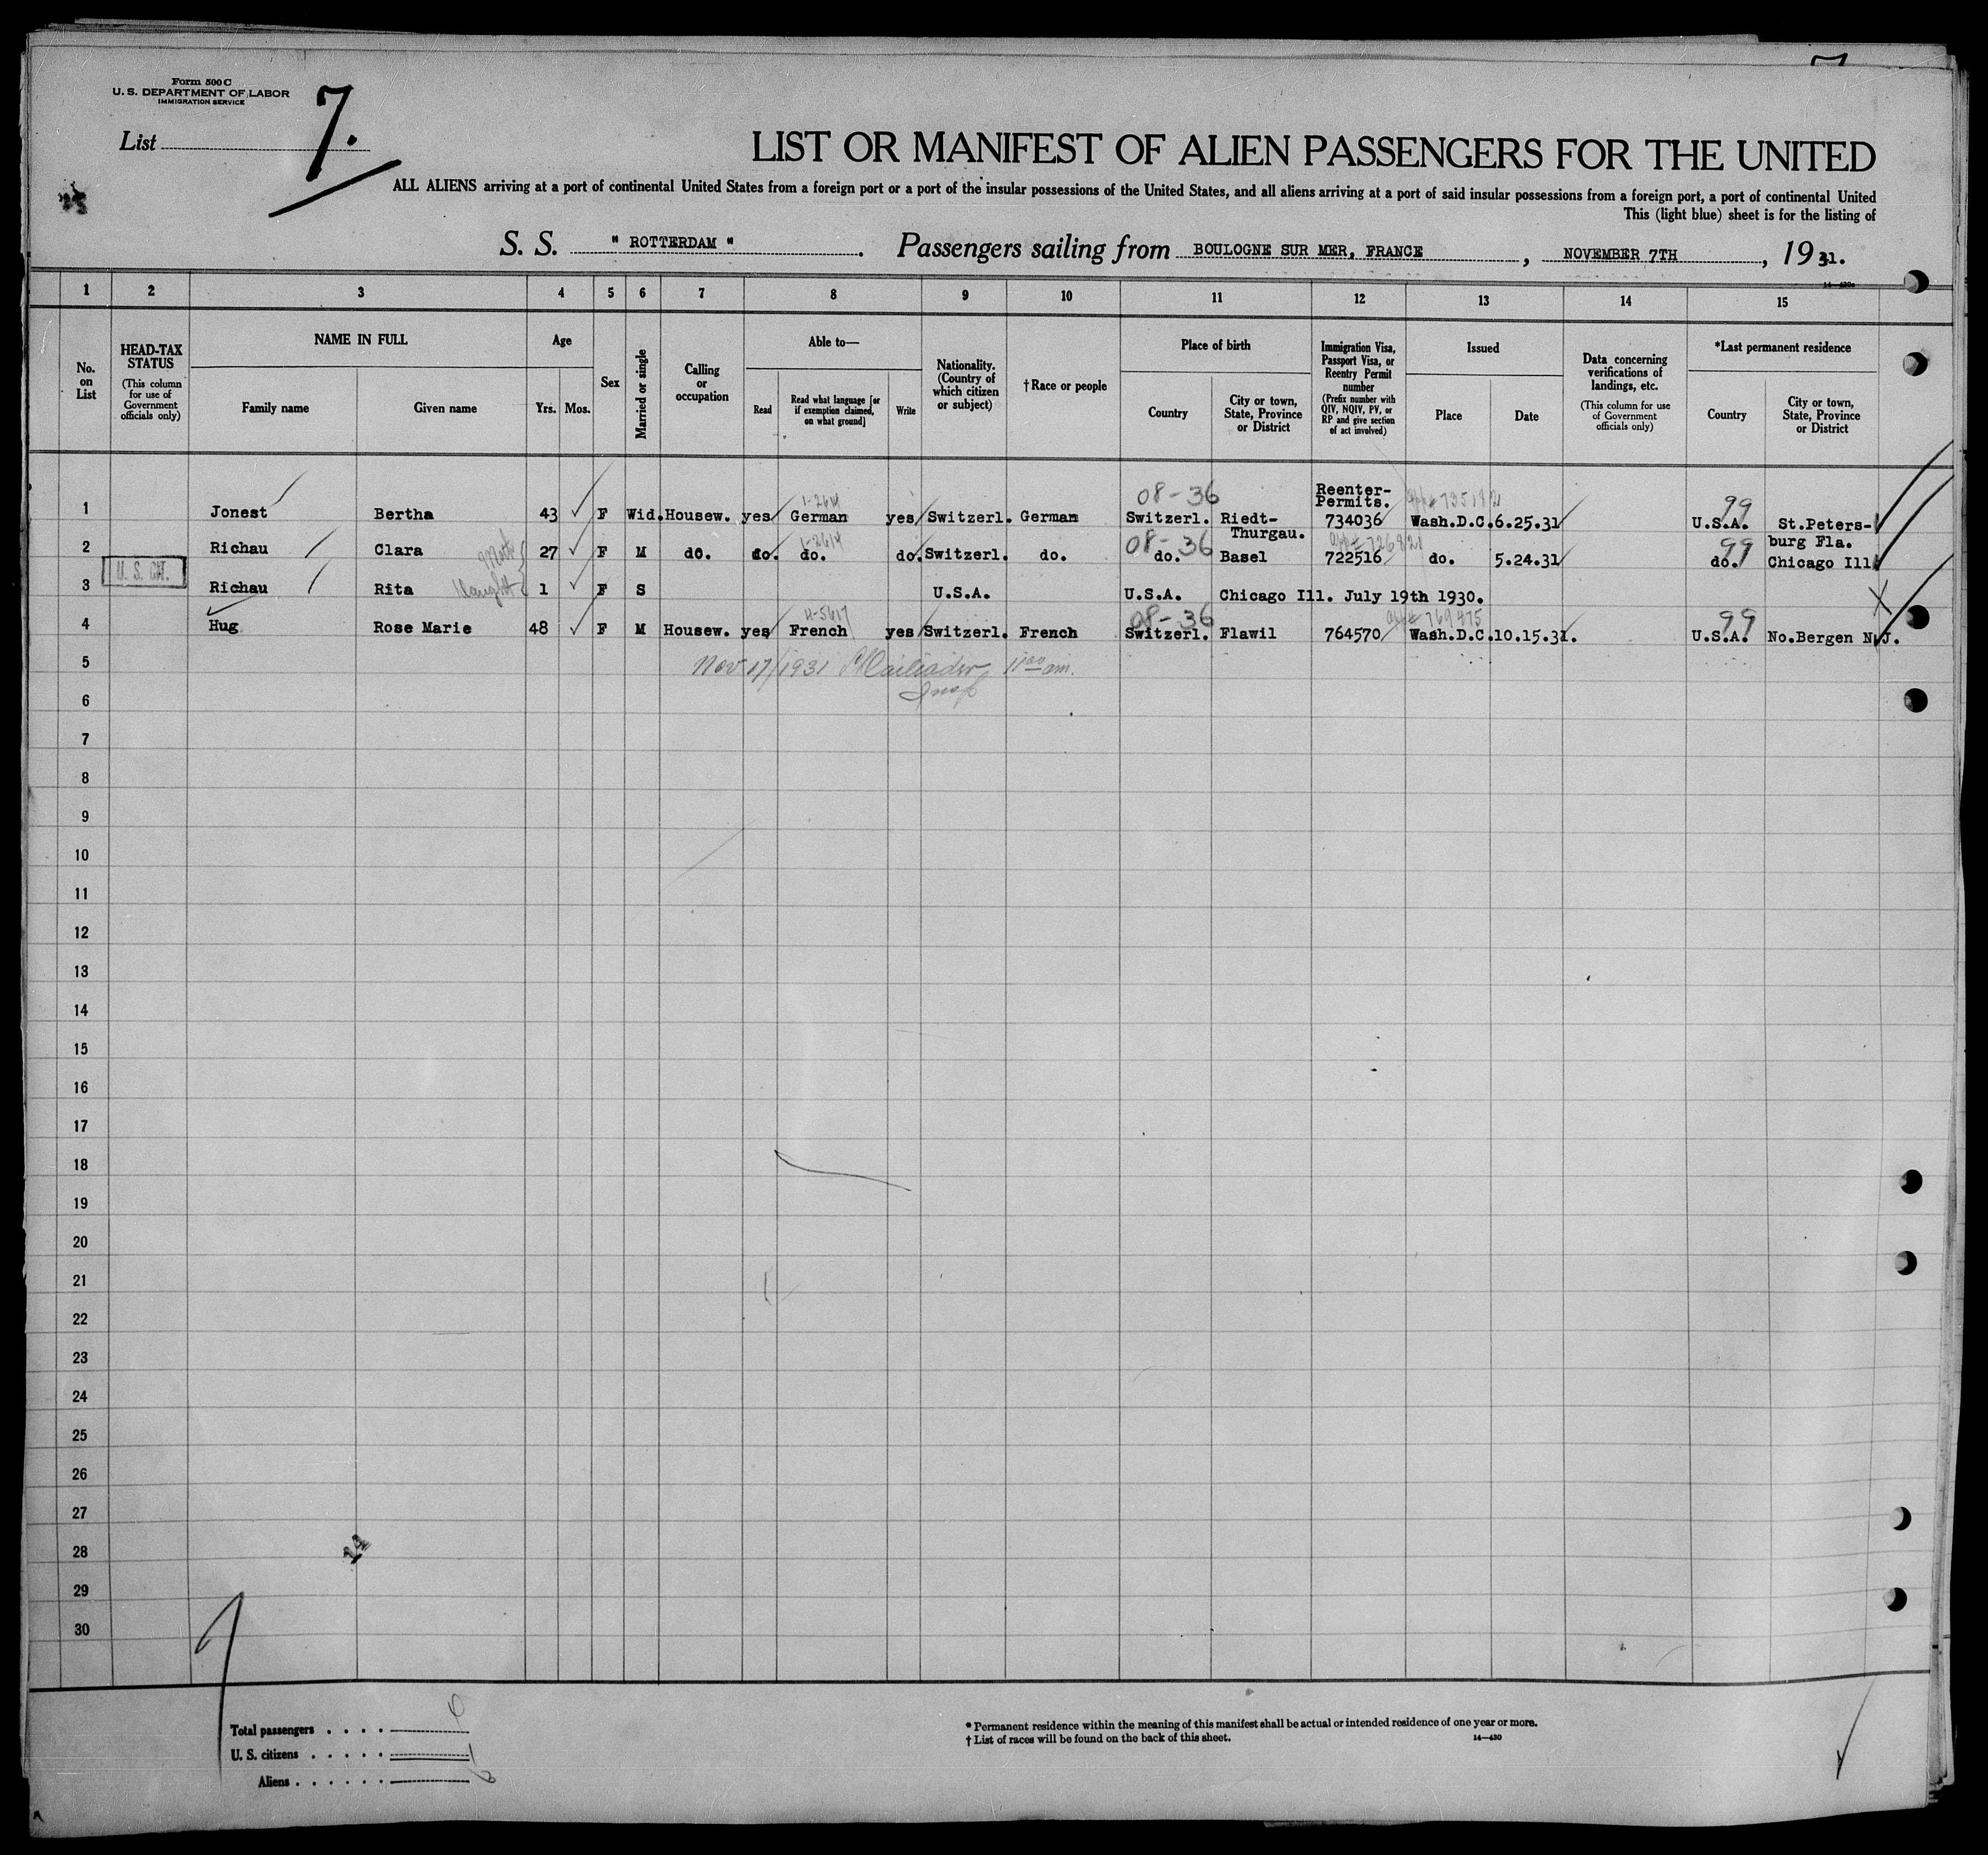 Form 500 C
U. S. DEPARTMENT OF LABOR
IMMIGRATION SERVICE
List 7.
LIST OR MANIFEST OF ALIEN PASSENGERS FOR THE UNITED
ALL ALIENS arriving at a port of continental United States from a foreign port or a port of the insular possessions of the United States, and all aliens arriving at a port of said insular possessions from a foreign port, a port of continental United
This (light blue) sheet is for the listing of
S. S. " ROTTERDAM ". Passengers sailing from BOULOGNE SUR MER, FRANCE, NOVEMBER 7TH, 1931.
1 2 3 4 5 6 7 8 9 10 11 12 13 14 15
No. on List
HEAD-TAX STATUS
(This column for use of Government officials only)
NAME IN FULL
Family name Given name
Age
Yrs. Mos.
Sex
Married or single
Calling or occupation
Able to—
Read
Read what language [or if exemption claimed, on what ground]
Write
Nationality. (Country of which citizen or subject)
† Race or people
Place of birth
Country
City or town, State, Province or District
Immigration Visa, Passport Visa, or Reentry Permit number
(Prefix number with QIV, NQIV, PV, or RP and give section of act involved)
Issued
Place Date
Data concerning verifications of landings, etc.
(This column for use of Government officials only)
*Last permanent residence
Country
City or town, State, Province or District
08-36 Reenter-Permits. 99
1 Jonest Bertha 43 F Wid. Housew. yes German yes Switzerl. German Switzerl. Riedt-Thurgau. 734036 Wash.D.C. 6.25.31 U.S.A. St.Petersburg Fla.
1-2614 08-36 99
2 Richau Clara 27 F M do. do. do. do. Switzerl. do. do. Basel 722516 do. 5.24.31 do. Chicago Ill
U. S. CIT.
3 Richau Rita 1 F S U.S.A. U.S.A. Chicago Ill. July 19th 1930.
08-36 99
4 Hug Rose Marie 48 F M Housew. yes French yes Switzerl. French Switzerl. Flawil 764570 Wash.D.C. 10.15.31. U.S.A. No.Bergen N.J.
5 Nov 17/1931 11 00 am.
Insp
6
7
8
9
10
11
12
13
14
15
16
17
18
19
20
21
22
23
24
25
26
27
28
29
30
Total passengers
U. S. citizens
Aliens
* Permanent residence within the meaning of this manifest shall be actual or intended residence of one year or more.
† List of races will be found on the back of this sheet.
14—430